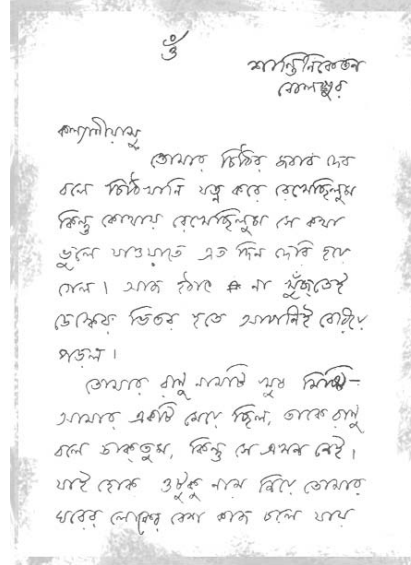 ওঁ
শান্তিনিকেতন
বোলপুর
কল্যাণীয়াসু
তোমার চিঠির জবাব দেব
বলে চিঠিখানি যত্ন করে রেখেছিলুম
কিন্তু কোথায় রেখেছিলুম সে কথা
ভুলে যাওয়াতে এত দিন দেরি হয়ে
গেল। আজ হঠাৎ না খুঁজতেই
ডেস্কের ভিতর হতে আপনিই বেরিয়ে
পড়ল।
তোমার রাণু নামটি খুব মিষ্টি—
আমার একটি মেয়ে ছিল, তাকে রাণু
বলে ডাকতুম, কিন্তু সে এখন নেই।
যাই হোক ওটুকু নাম নিয়ে তোমার
ঘরের লোকের বেশ কাজ চলে যায়